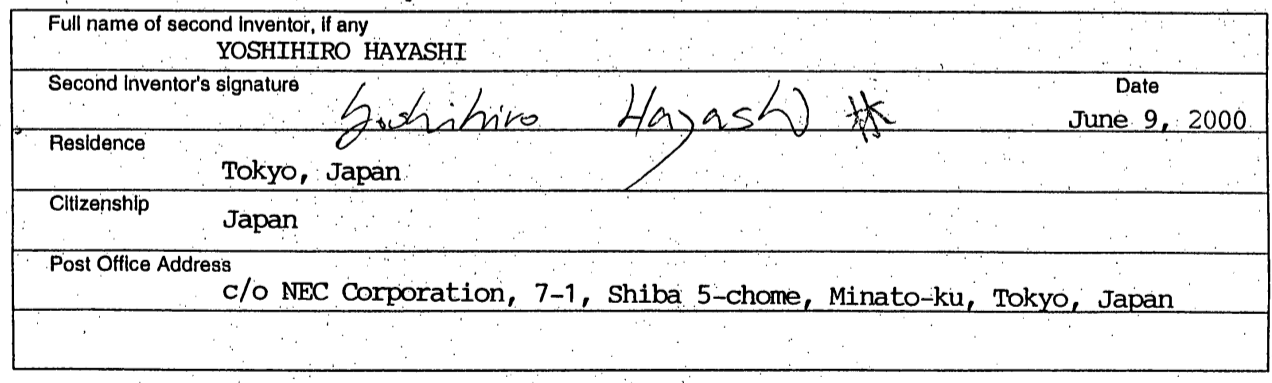 Full name of second inventor, if any
YOSHIHIRO HAYASHI
Second inventor's signature
Yoshihiro Hayashi 林
Date
June 9, 2000
Residence
Tokyo, Japan
Citizenship
Japan
Post Office Address
c/o NEC Corporation, 7-1, Shiba 5-chome, Minato-ku, Tokyo, Japan